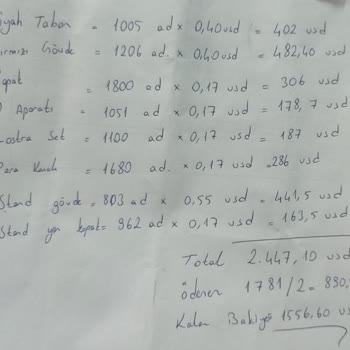 iyah Taban = 1005 ad × 0,40usd = 402 usd
ırmızı Gövde = 1206 ad. × 0,40usd = 482,40 usd
apak = 1800 ad × 0,17 usd = 306 usd
Aparatı = 1051 ad × 0,17 usd = 178,7 usd
ostra Set = 1100 ad × 0,17 usd = 187 usd
Para = 1680 ad. × 0,17 usd =286 usd
Stand gövde = 803 ad × 0.55 usd = 441,5 usd
Stand yan kapak= 962 ad × 0,17 usd = 163,5 usd
Total 2.447,10 usd
ödenen 1781/2= 890,
Kalan Bakiye 1556,60 usd